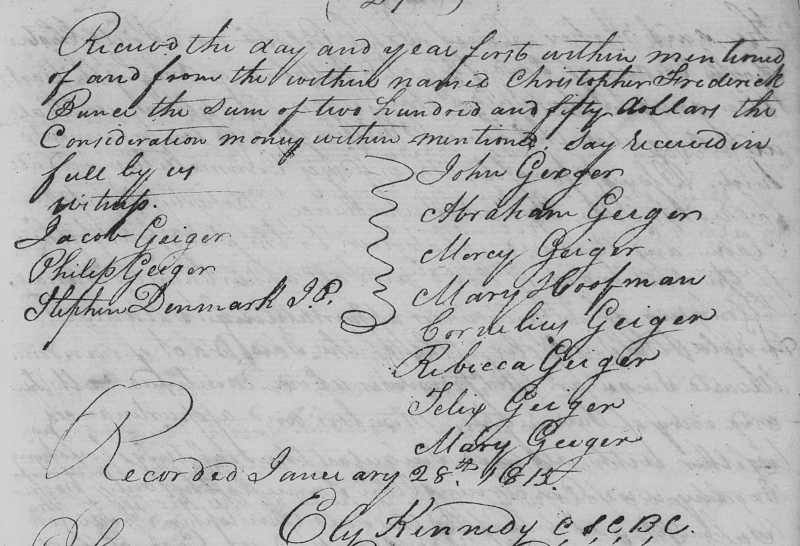 Received the day and year first within mentioned
of and from the within named Christopher Frederick
Bunce the Sum of two hundred and fifty dollars the
Consideration money within mentiond. Say received in
full by us
witness.
Jacob Geiger
Philip Geiger
Stephen Denmark J.P.
John Geiger
Abraham Geiger
Mercy Geiger
Mary Hoofman
Cornelius Geiger
Rebecca Geiger
Felix Geiger
Mary Geiger
Recorded January 28th. 1815.
Ely Kennedy C S C B C.